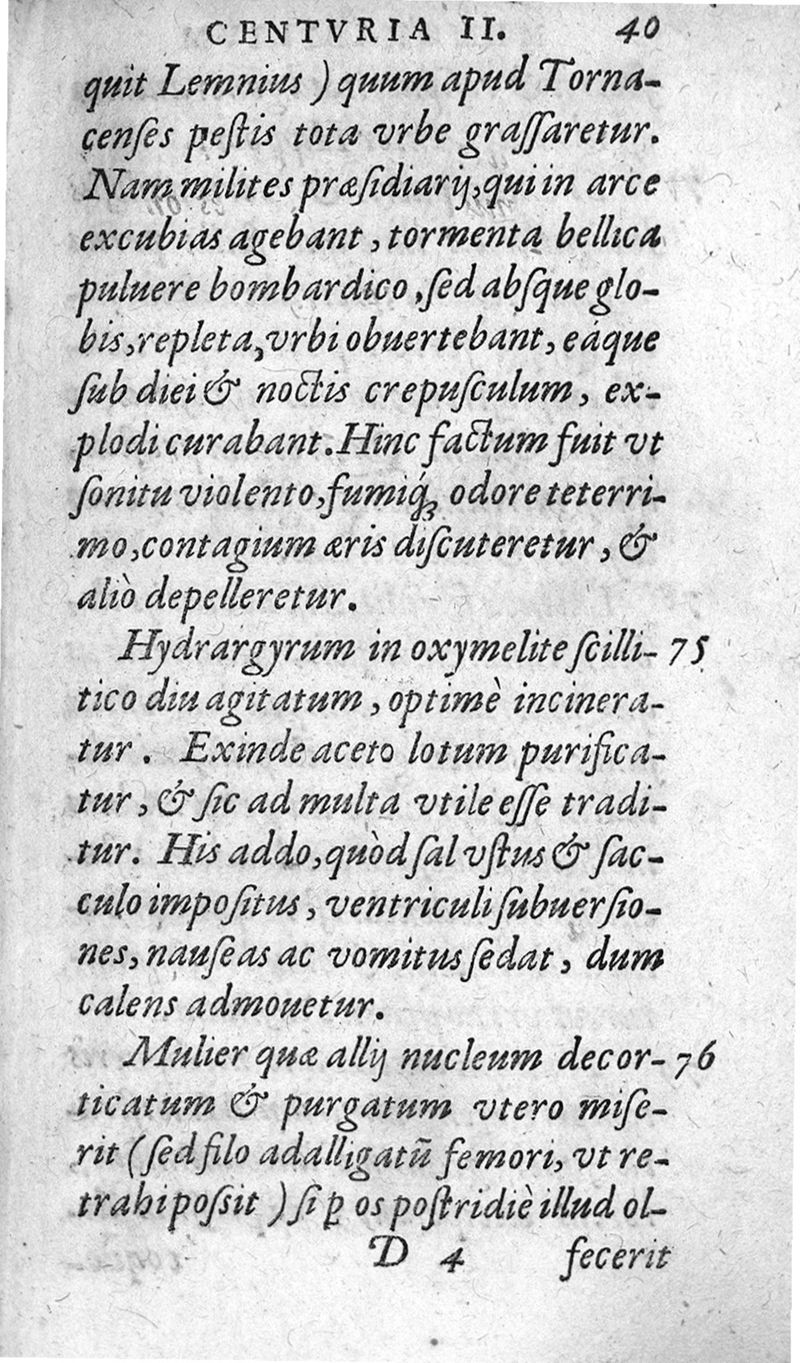 CENTVRIA II. 40
quit Lemnius ) quum apud Torna-
censes pestis tota vrbe grassaretur.
Nam milites præsidiarij, qui in arce
excubias agebant, tormenta bellica
puluere bombardico, sed absque glo-
bis, repleta, vrbi obuertebant, eáque
sub diei & noctis crepusculum, ex-
plodi curabant. Hinc factum fuit vt
sonitu violento, fumiq́; odore teterri-
mo, contagium æris discuteretur, &
aliò depelleretur.
Hydrargyrum in oxymelite scilli- 75
tico diu agitatum, optimè incinera-
tur. Exinde aceto lotum purifica-
tur, & sic ad multa vtile esse tradi-
tur. His addo, quòd sal vstus & sac-
culo impositus, ventriculi subuersio-
nes, nauseas ac vomitus sedat, dum
calens admouetur.
Mulier quæ allij nucleum decor- 76
ticatum & purgatum vtero mise-
rit (sed filo adalligatū femori, vt re-
trahi possit ) si ꝑ os postridiè illud ol-
D 4 fecerit